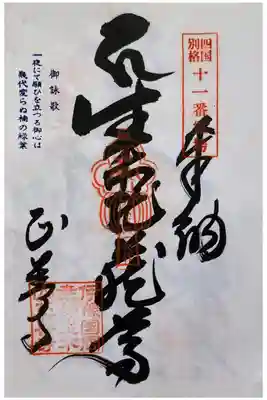 四国
別格
十一番
奉納
生木地蔵尊
正善寺
御詠歌
一夜にて願ひを立つる御心は
幾代変らぬ楠の緑葉